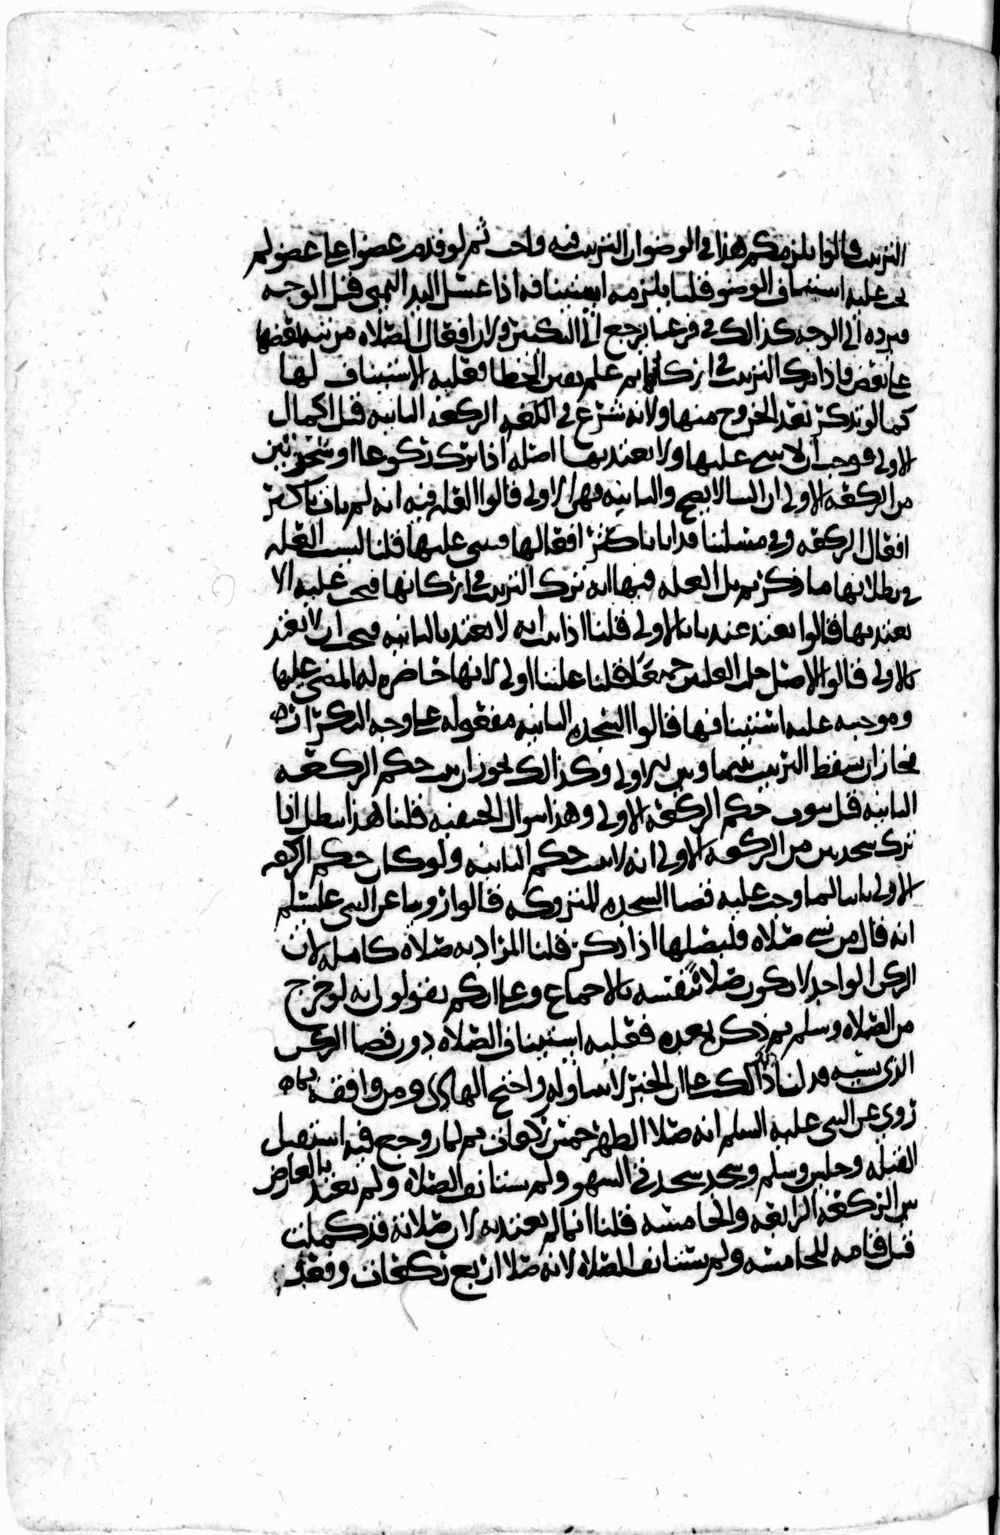 الترتيب قالوا يلزمكم هذا في الوضوء لان الترتيب فيه واجب ثم لو قدم عضوا على عضو لم
يجب عليه استئناف الوضو قلنا يلزمه استئنافه اذا غسل اليد اليمنى قبل الوجه
فيرده الى الوجه كذلك في فرعنا يرجع الى التكبير ولان افعال الصلاه مرتبه بعضها
على بعض فاذا ترك الترتيب في اركانها ثم علم تعين الخطا فعليه الاستئناف لها
كما لو تذكر بعد الخروج منها ولانه شرع في الركعه الثانيه قبل اكمال
الاولى فوجب ان لا يبني عليها ولا يعتد بها اصله اذا ترك ركوعها او سجدتين
من الركعه الاولى ان البنا لا يصح والثانيه فهي الاولى قالوا العله فيه انه لم يات باكثر
افعال الركعه وفي مسئلتنا قد اتا باكثر افعالها فيبنى عليها قلنا ليست العله
في بطلانها ما ذكرتم بل العله فيها انه ترك الترتيب في اركانها فيجب عليه الا
يعتد بها قالوا يعتد عندنا بالاولى قلنا اذا ثبت انه لا يعتد بالثانيه فيجب ان لا يعتد
بالاولى قالوا الاصل حمل العلتين جميعا قلنا علتنا اولى لانها حاضره له المضي عليها
وموجبه عليه استئنافها قالوا السجده الثانيه مفعوله على وجه التكرار
فجاز ان يسقط الترتيب بينها وبين الاولى وكذلك يجوز ان يثبت حكم الركعه
الثانيه قبل ثبوت حكم الركعه الاولى وهذا سوال الحنفيه قلنا هذا يبطل اذا
ترك سجدتين من الركعه الاولى انه لا يثبت حكم الثانيه ولو كان حكم الركعه
الاولى ثابتا لما وجب عليه قضا السجده المتروكه قالوا روينا عن النبي عليه السلم
انه قال من نسي صلاه فليصلها اذا ذكر قلنا المراد به صلاه كامله لان
الركن الواحد لا يكون صلاه بنفسه بالاجماع وعلى انكم تقولون انه لو خرج
من الصلاه وسلم ثم ذكر بعده فعليه استئناف الصلاه دون قضا الركن
الذي نسيه فدلنا ذلك على ان الخبر لا يتناوله واحتج الهادي ومن وافقه بما
روي عن النبي عليه السلم انه صلا الظهر خمس ركعات ثم لما روجع فيه استقبل
القبله وجلس وسلم وسجد سجدتي السهو ولم يستانف الصلاه ولم يعتد بالعارض
بين الركعه الرابعه والخامسه قلنا انما لم يعتد به لان صلاته قد كملت
قبل قيامه للخامسه ولم يستانف الصلاه لانه صلا اربع ركعات وقعد